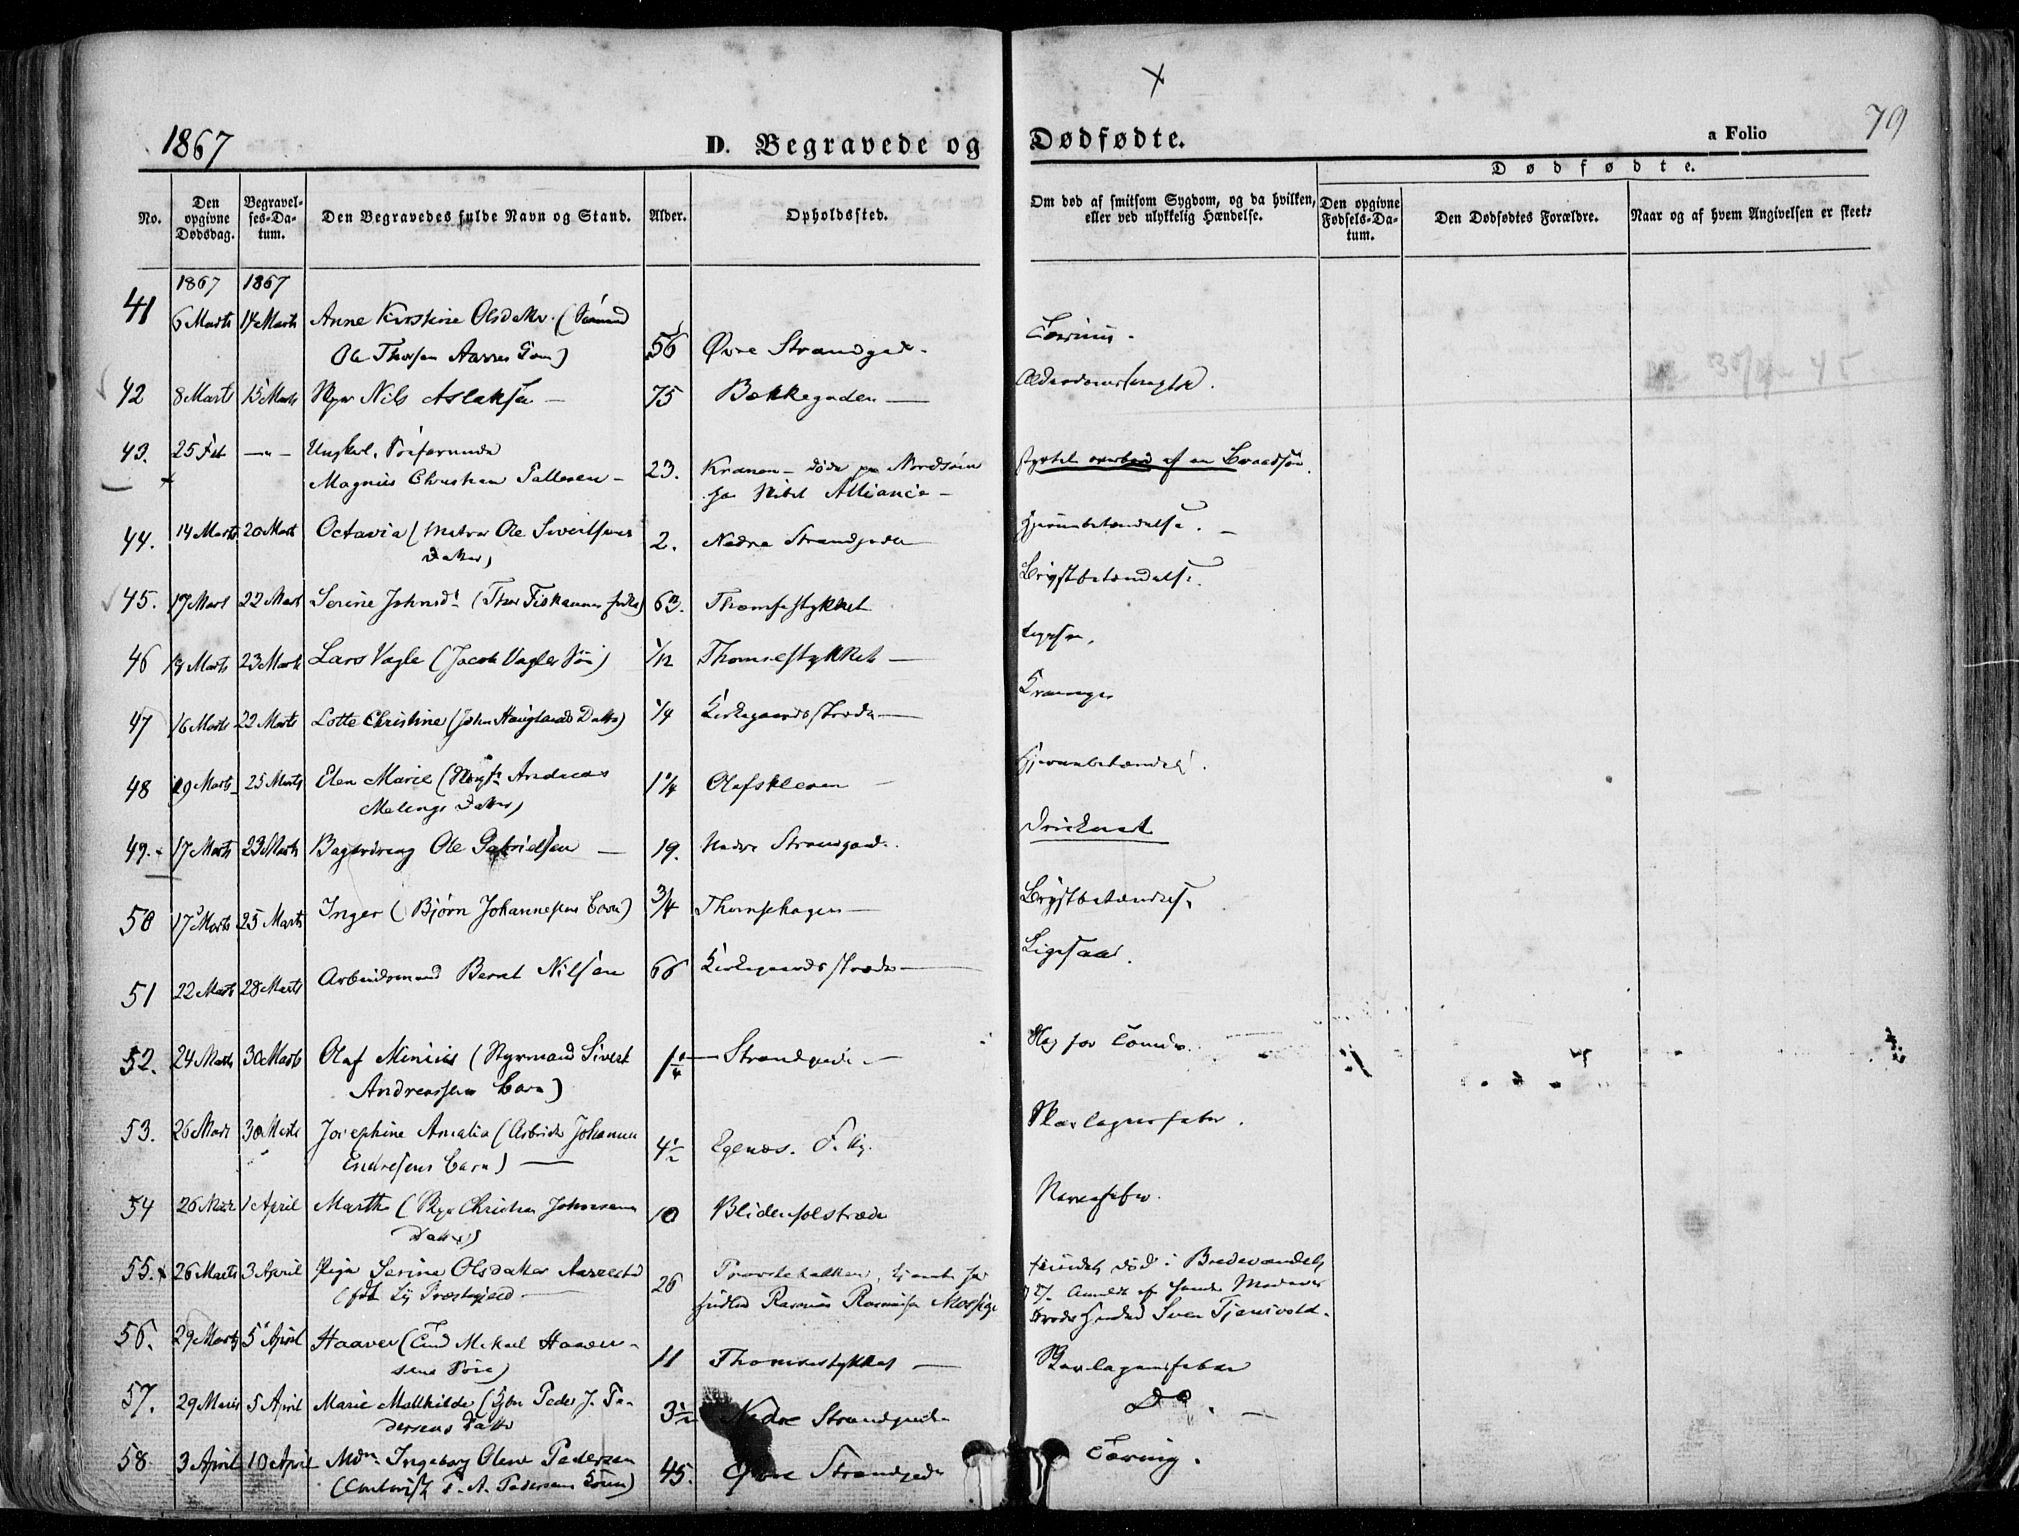 1867
D. Begravede og Dødfødte.
a Folio 79
Dødfødte.
No.
Den opgivne Dødsdag.
Begravelses-Datum.
Den Begravedes fulde Navn og Stand.
Alder.
Opholdssted.
Om død af smitsom Sygdom, og da hvilken,
eller ved ulykkelig Hændelse.
Den opgivne Fødsels-Datum.
Den Dødfødtes Forældre.
Naar og af hvem Angivelsen er skeet:
1867 1867
41 6 Marts 14 Marts Anne Kirstine Olsdatter (
Ole Thorsen Aarres 56 Øvre Strandgade
42 8 Marts 15 Marts Nils Aslaksen — 75 Bækkegaden —
43. 25 Feb —„— Ungkarl,
Magnus Christian Tallesen — 23. — døde paa Nordsøen
Skibet Alliance — overbord af en Braadsø.
44. 14 Marts 20 Marts Octavia (Matros Ole Sivertsens
Datter) 2. Nedre Strandgade Hjernebetændelse. —
45. 17 Marts 22 Marts Serine Johnsd. (63. Thomsestykket Brystbetændelse.
46 19 Marts 23 Marts Lars Vagle (Jacob Vagles Søn) 1/12 Thomsestykket —
47 16 Marts 22 Marts Lotte Christine (John Hauglands Datter) 1/4 Kirkegaardsstrædet — Krampe
48 19 Marts 25 Marts Elen Marie (Andreas
Malings Datter) 1 1/4 Olafskleven Hjernebetændelse.
49. 17 Marts 23 Marts Bagerdreng Ole Gabrielsen — 19. Nedre Strandgade.
50 17 Marts 25 Marts Inger (Bjørn Johannesens Barn) 3/4 — Brystbetændelse
51 22 Marts 28 Marts Arbeidsmand Bernt Nilsen 66 Kirkegaardsstrædet — Ligesaa.
52. 24 Marts 30 Marts Olaf Minius (Styrmand Sivert
Andreassens Barn) 1 1/4 — Strandgade —
53. 26 Marts 30 Marts Josephine Amalia (Arbeider Johannes
Endresens Barn) — 4 1/2 Egenæs. Skarlagensfeber.
54 26 Mar 1 April Marthe (Christian Johnsens
Datter) 10 Blidensolstræde Nervefeber.
55. 26 Marts 3 April Pige Serine Olsdatter Aarrestad
26 Rasmus Rasmussen fundet død i Bredevandet
Sven Tjensvold.
56. 29 Marts 5 April Haaver (Mikael Haaver-
sens Søn) 11 Thomsestykket — Skarlagensfeber
57. 29 Marts 5 April Marie Mathilde (Peder J. Pe-
dersens Datter 3 1/2 Nedre Strandgade Do. —
58 3 April 10 April Mdm Ingeborg Oline Pedersen
(P. A. Pedersens Kone) 45. Øvre Strandgade Tæring.